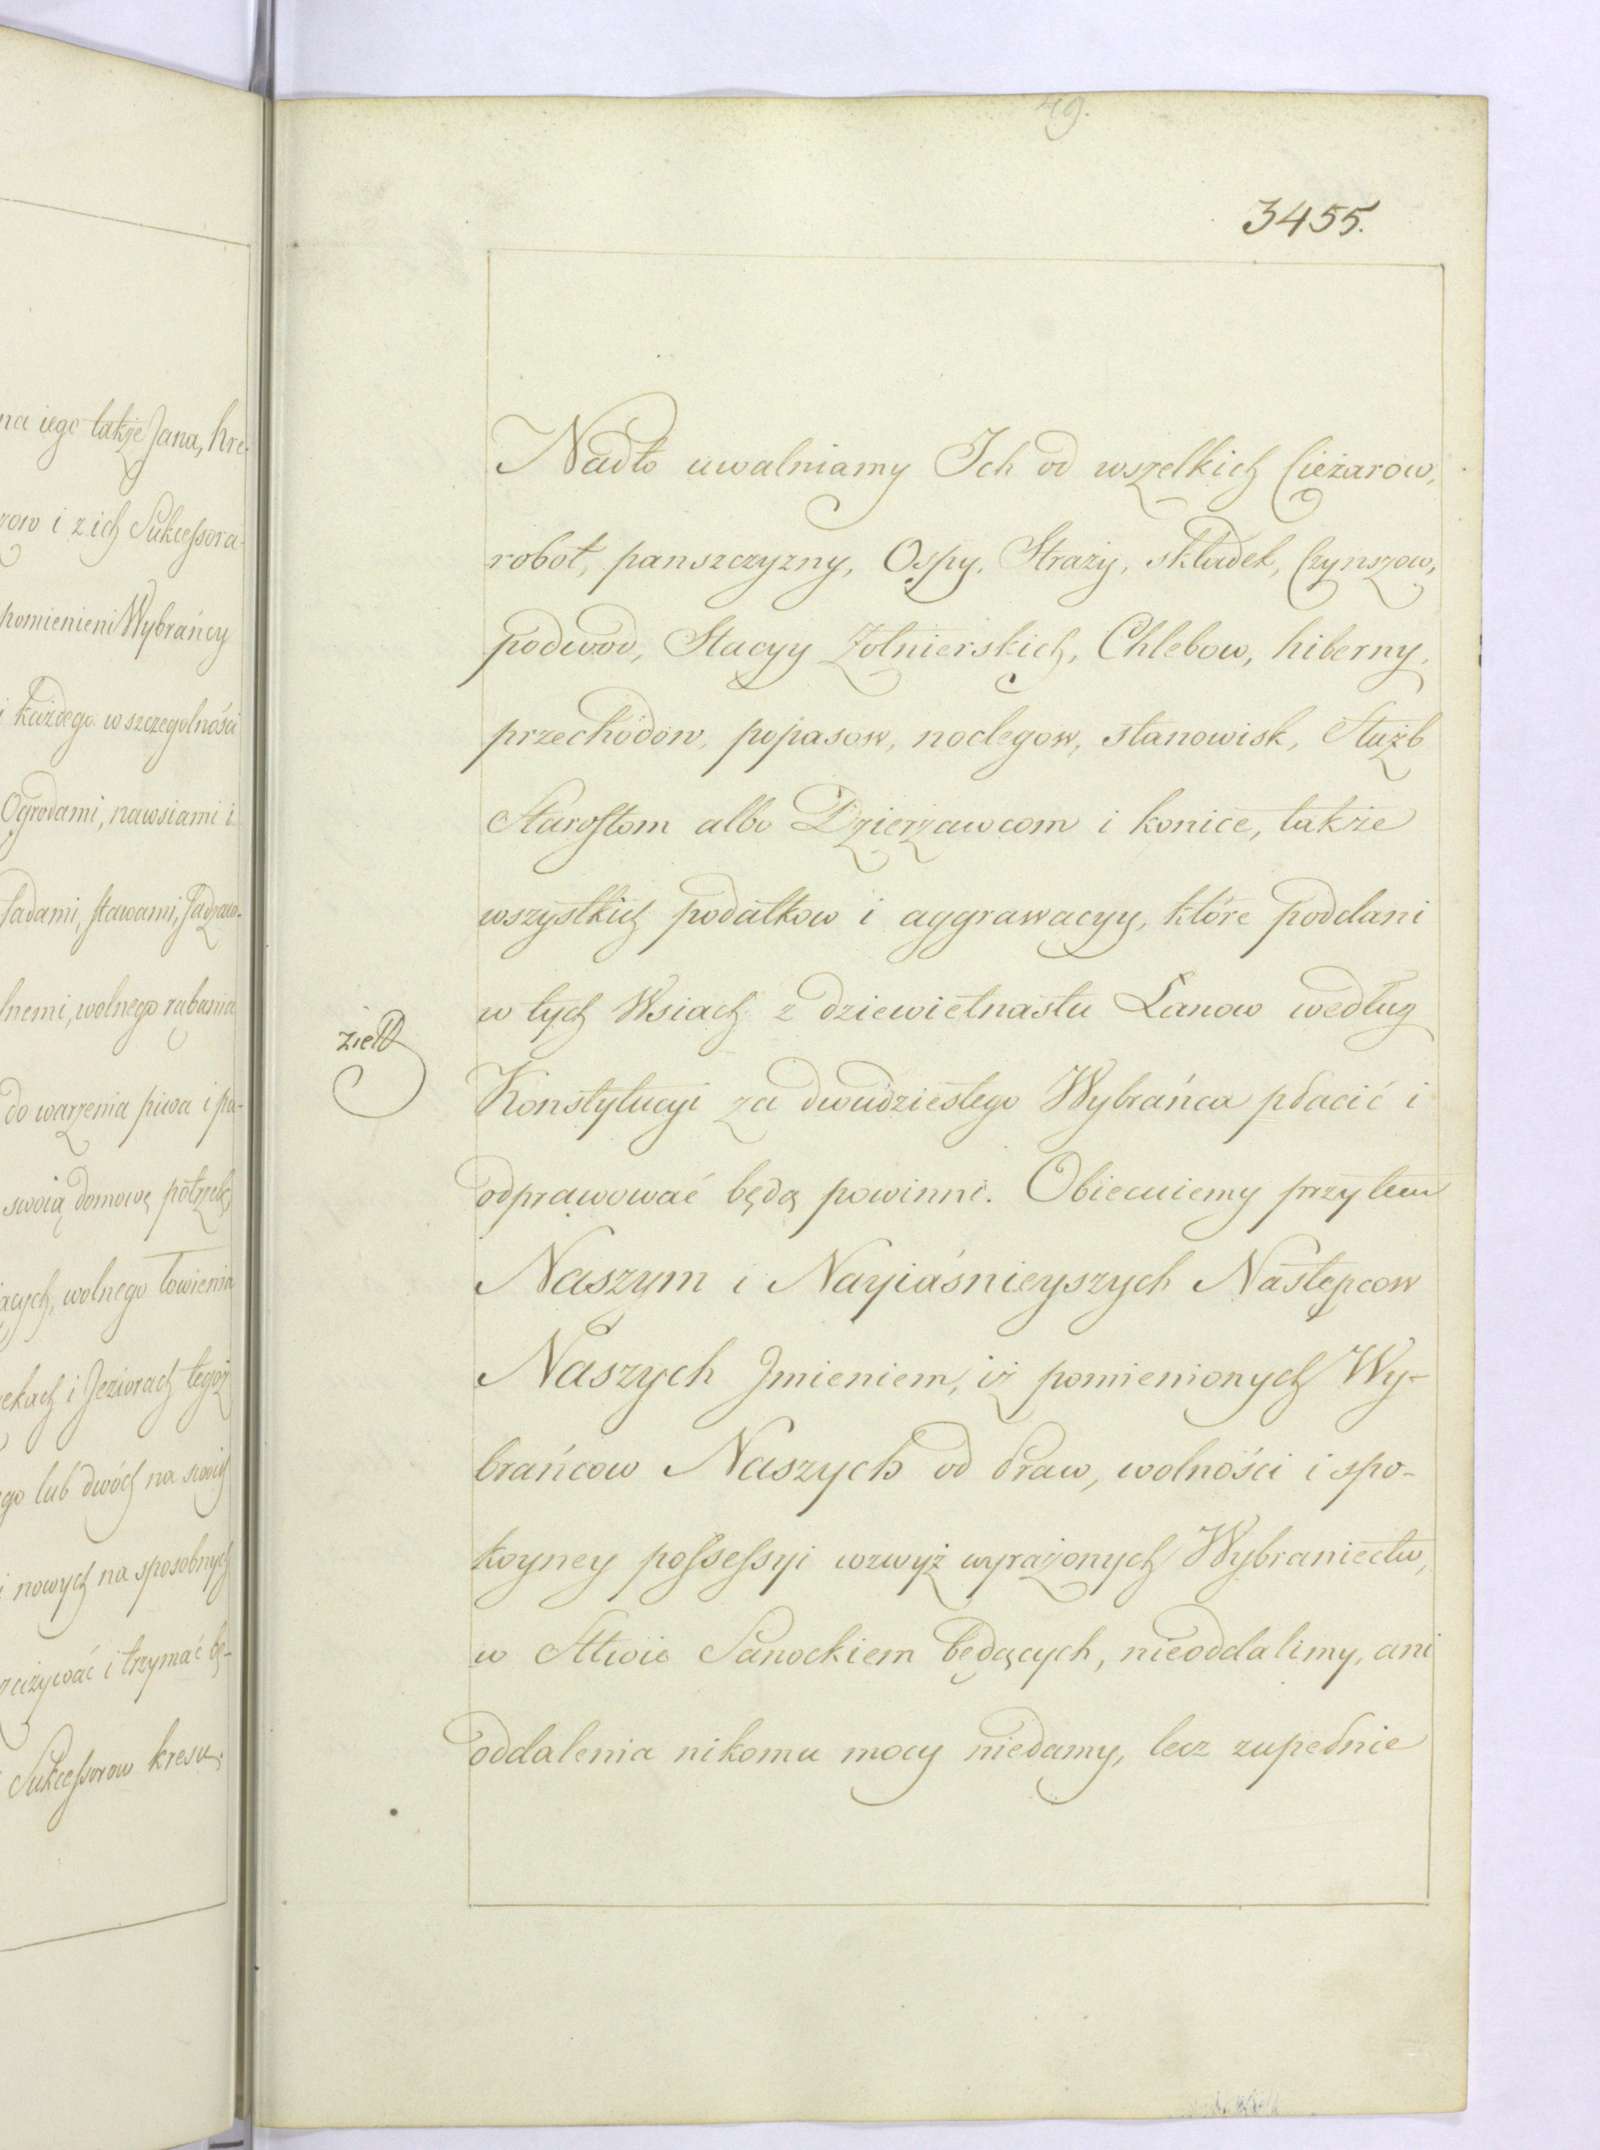 na iego także Jana, kre-
row i z ich Sukcessora-
pomienieni Wybrańcy
i każdego w szczegolności
Ogrodami, nawsiami i
sadami, stawami, sadzaw-
lnemi, wolnego rąbania
do warzenia piwa i pa-
swoią domową potrzebę,
iących, wolnego łowienia
rekach i Jeziorach tegoż
ego lub dwóch na swoich
i nowych na sposobnych
trzymać bę-
Sukcessorow kresu.
49.
3455.
Nadto uwalniamy Ich od wszelkich Ciężarow,
robot, panszczyzny, Ospy, Straży, składek, Czynszow,
podwod, Stacyy Żołnierskich, Chlebow, hiberny,
przechodow, popasow, noclegow, stanowisk, Służb
Starostom albo Dzierżawcom i konice, także
wszystkich podatkow i aggrawacyy, które poddani
w tych Wsiach z dziewietnastu Łanow według
Konstytucyi za dwudziestego Wybrańca płacić i
odprawować będą powinni. Obiecuiemy przytem
Naszym i Nayiaśnieyszych Następcow
Naszych Jmieniem, iż pomienionych Wy-
brańcow Naszych od Praw, wolności i spo-
koyney possessyi wzwyż wyrażonych Wybraniectw,
w Sttwie Sanockiem będących, nieoddalimy, ani
oddalenia nikomu mocy niedamy, lecz zupełnie